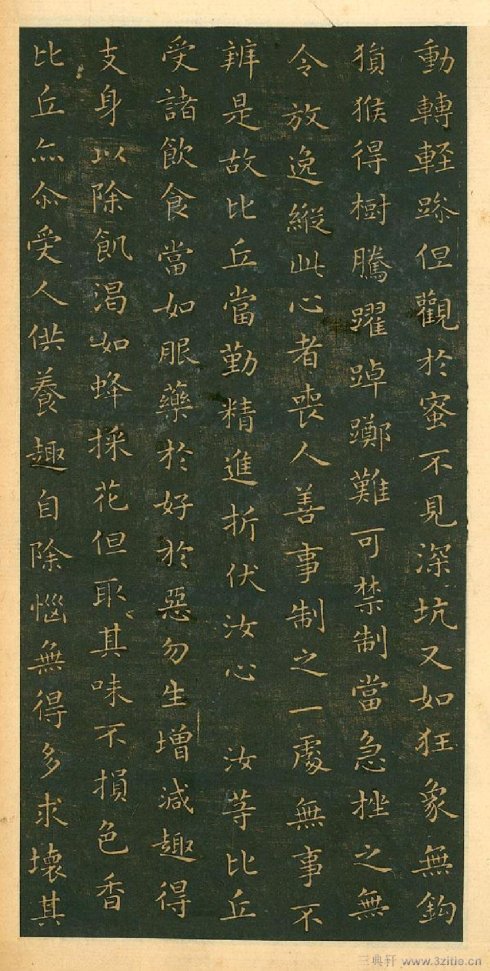 動轉輕躁但觀於蜜不見深坑又如狂象無鈎
猨猴得樹騰躍踔躑難可禁制當急挫之無
令放逸縱此心者喪人善事制之一處無事不
辨是故比丘當勤精進折伏汝心 汝等比丘
受諸飲食當如服藥於好於惡勿生增減趣得
支身以除飢渴如蜂採花但取其味不損色香
比丘亦尒受人供養趣自除惱無得多求壞其
三典轩 www.3zitie.cn